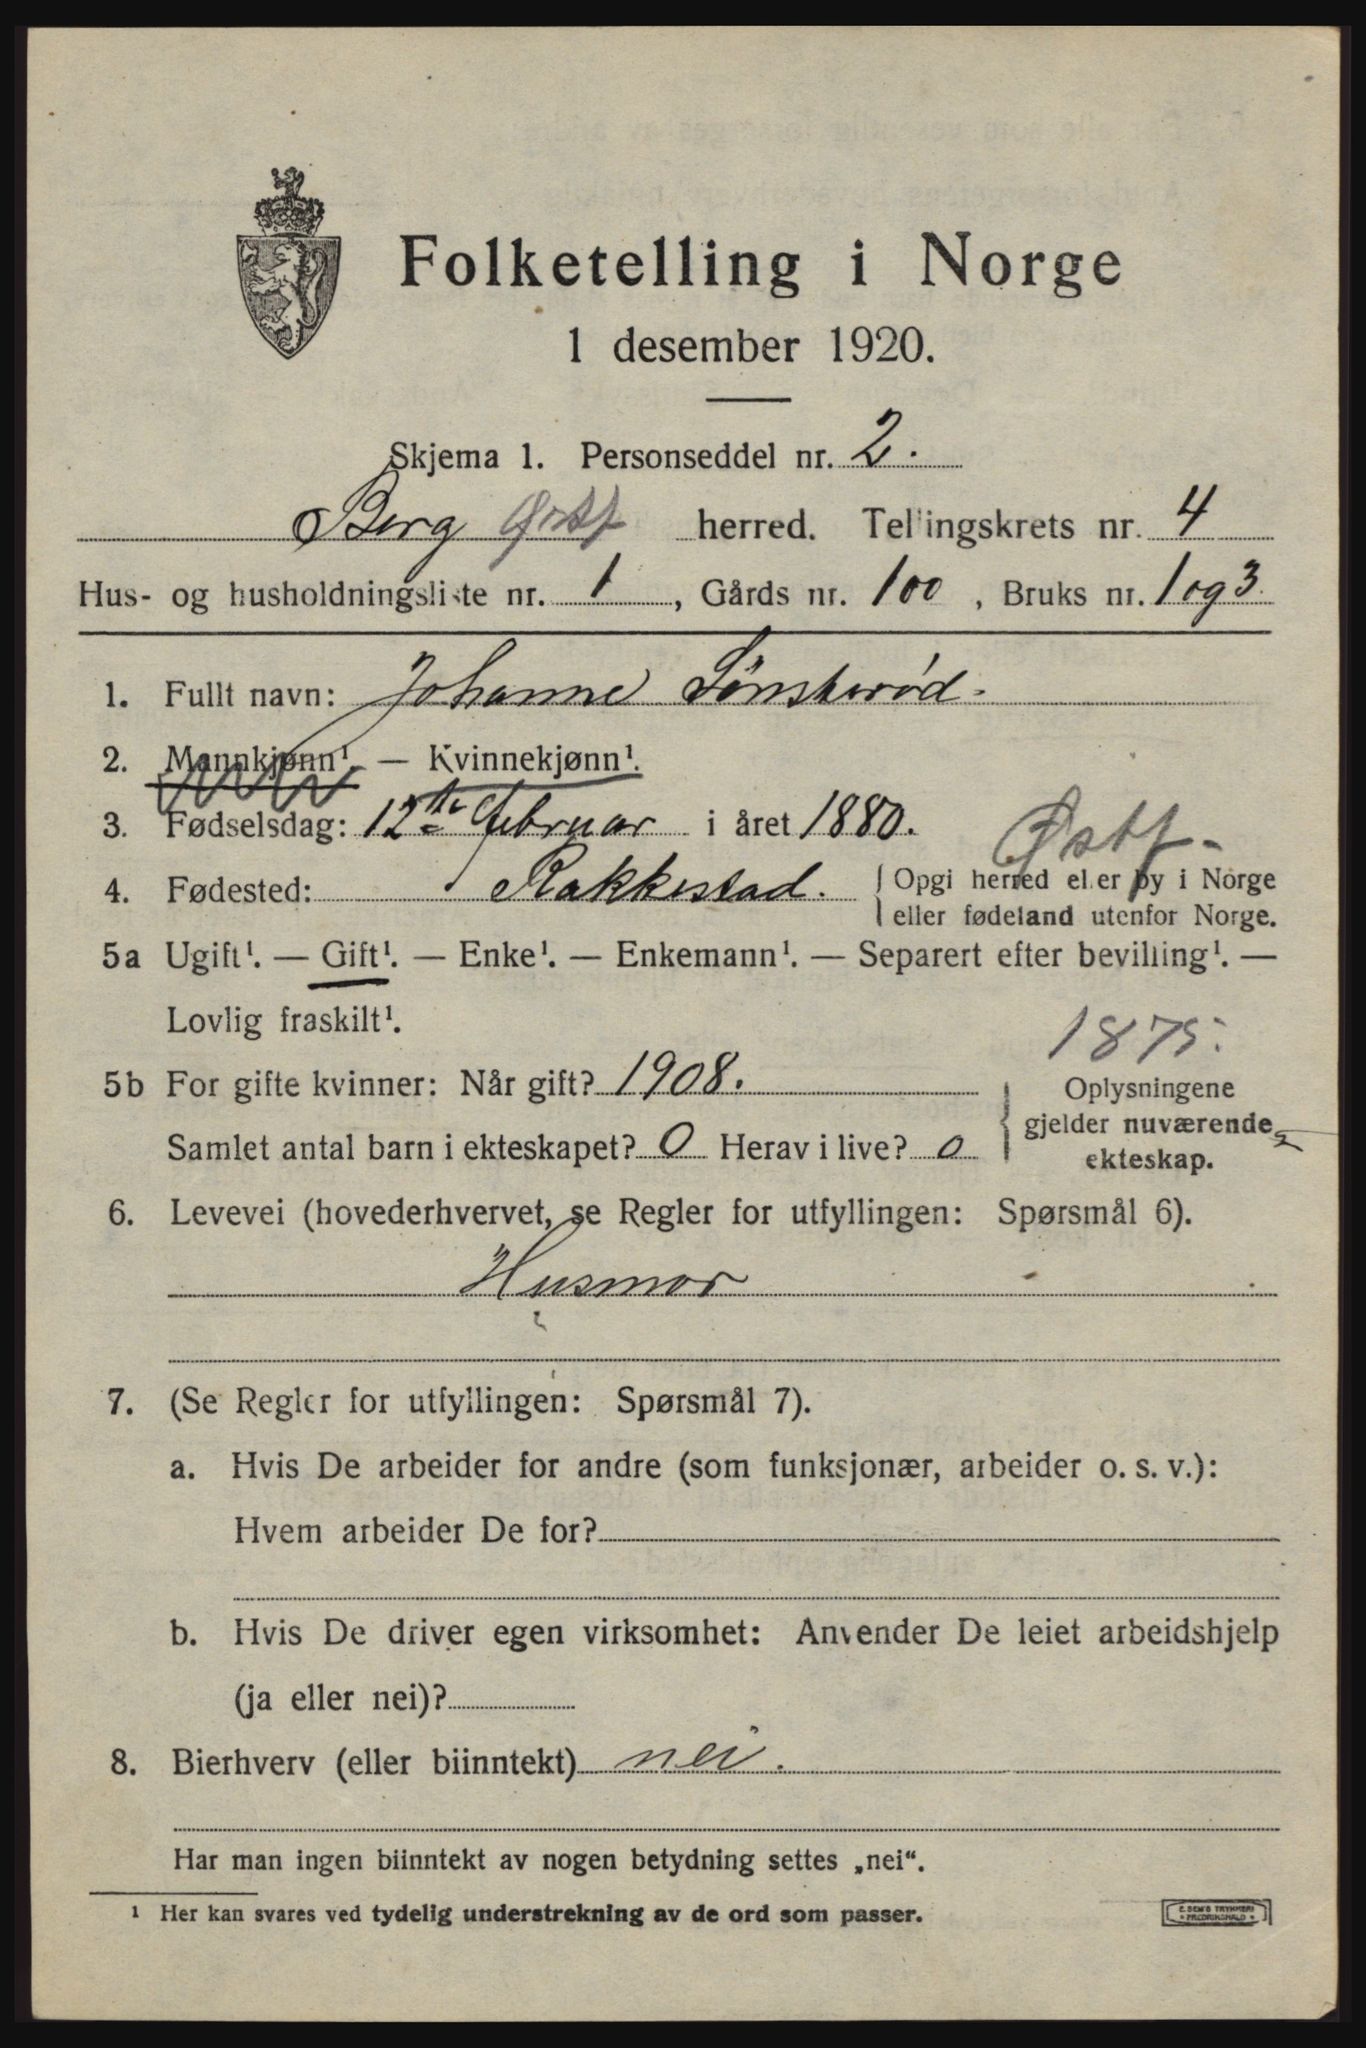 Folketelling i Norge
1 desember 1920.
Skjema 1. Personseddel nr. 2.
Berg Østf herred. Tellingskrets nr. 4
Hus- og husholdningsliste nr. 1, Gårds nr. 100, Bruks nr. 1 og 3.
1. Fullt navn: Johanne Sønsterød.
2. Mannkjønn¹. — Kvinnekjønn¹.
3. Fødselsdag: 12te februar i året 1880.
Østf.
4. Fødested: Rakkestad. Opgi herred eller by i Norge
eller fødeland utenfor Norge.
5a Ugift¹. — Gift¹. — Enke¹. — Enkemann¹. — Separert efter bevilling¹. —
Lovlig fraskilt¹.
1875.
5b For gifte kvinner: Når gift? 1908. Oplysningene
gjelder nuværende
Samlet antal barn i ekteskapet? 0 Herav i live? 0 ekteskap.
6. Levevei (hovederhvervet, se Regler for utfyllingen: Spørsmål 6).
Husmor
7. (Se Regler for utfyllingen: Spørsmål 7).
a. Hvis De arbeider for andre (som funksjonær, arbeider o. s. v.):
Hvem arbeider De for?
b. Hvis De driver egen virksomhet: Anvender De leiet arbeidshjelp
(ja eller nei)?
8. Bierhverv (eller biinntekt) nei.
Har man ingen biinntekt av nogen betydning settes „nei“.
¹ Her kan svares ved tydelig understrekning av de ord som passer.
E. SEM'S TRYKKERI
• FREDRIKSHALD •